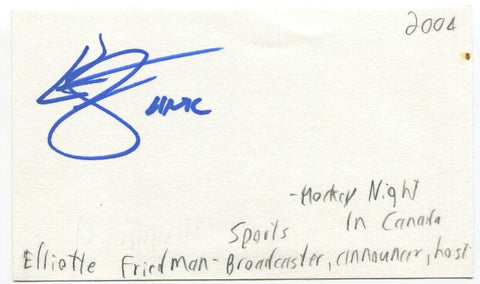 2004
HNIC
- Hockey Night
In Canada
Sports
Elliotte Friedman - Broadcaster, announcer, host